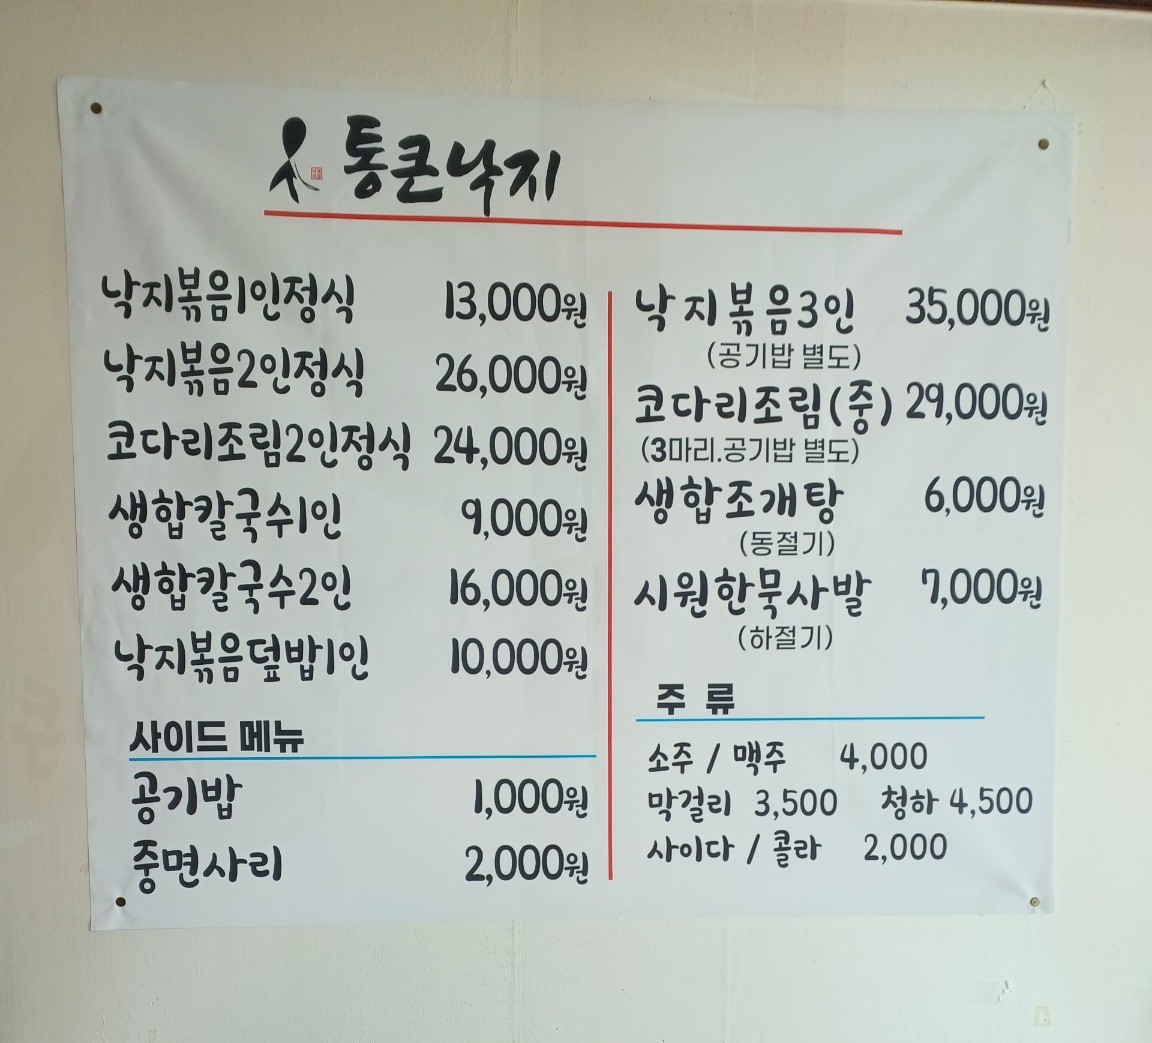 통큰낙지
낙지볶음1인정식 13,000원
낙지볶음2인정식 26,000원
코다리조림2인정식 24,000원
생합칼국수1인 9,000원
생합칼국수2인 16,000원
낙지볶음덮밥1인 10,000원
사이드 메뉴
공기밥 1,000원
중면사리 2,000원
낙지볶음3인 35,000원
(공기밥 별도)
코다리조림(중) 29,000원
(3마리.공기밥 별도)
생합조개탕 6,000원
(동절기)
시원한묵사발 7,000원
(하절기)
주 류
소주 / 맥주 4,000
막걸리 3,500 청하 4,500
사이다 / 콜라 2,000